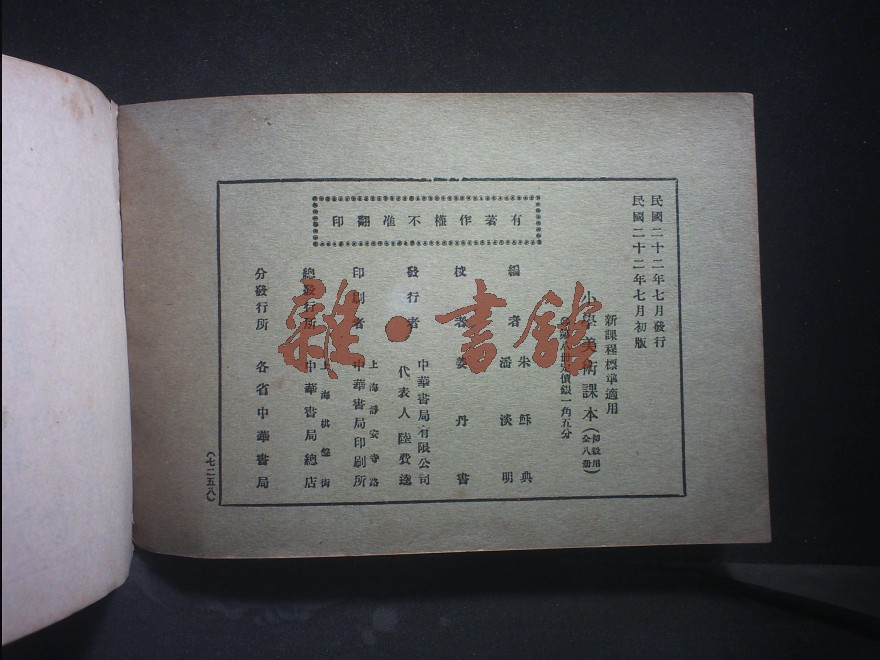 民國二十二年七月發行
民國二十二年七月初版
新課程標準適用
小學美術課本(初級用全八册)
第 八册定價銀一角五分
編者 朱穌典
潘淡明
校者 姜丹書
發行者 中華書局有限公司
代表人 陸費逵
印刷者 上海靜安寺路
中華書局印刷所
總發行所 上海棋盤街
中華書局總店
分發行所 各省中華書局
有著作權不准翻印
(七二五八)
雜·書館